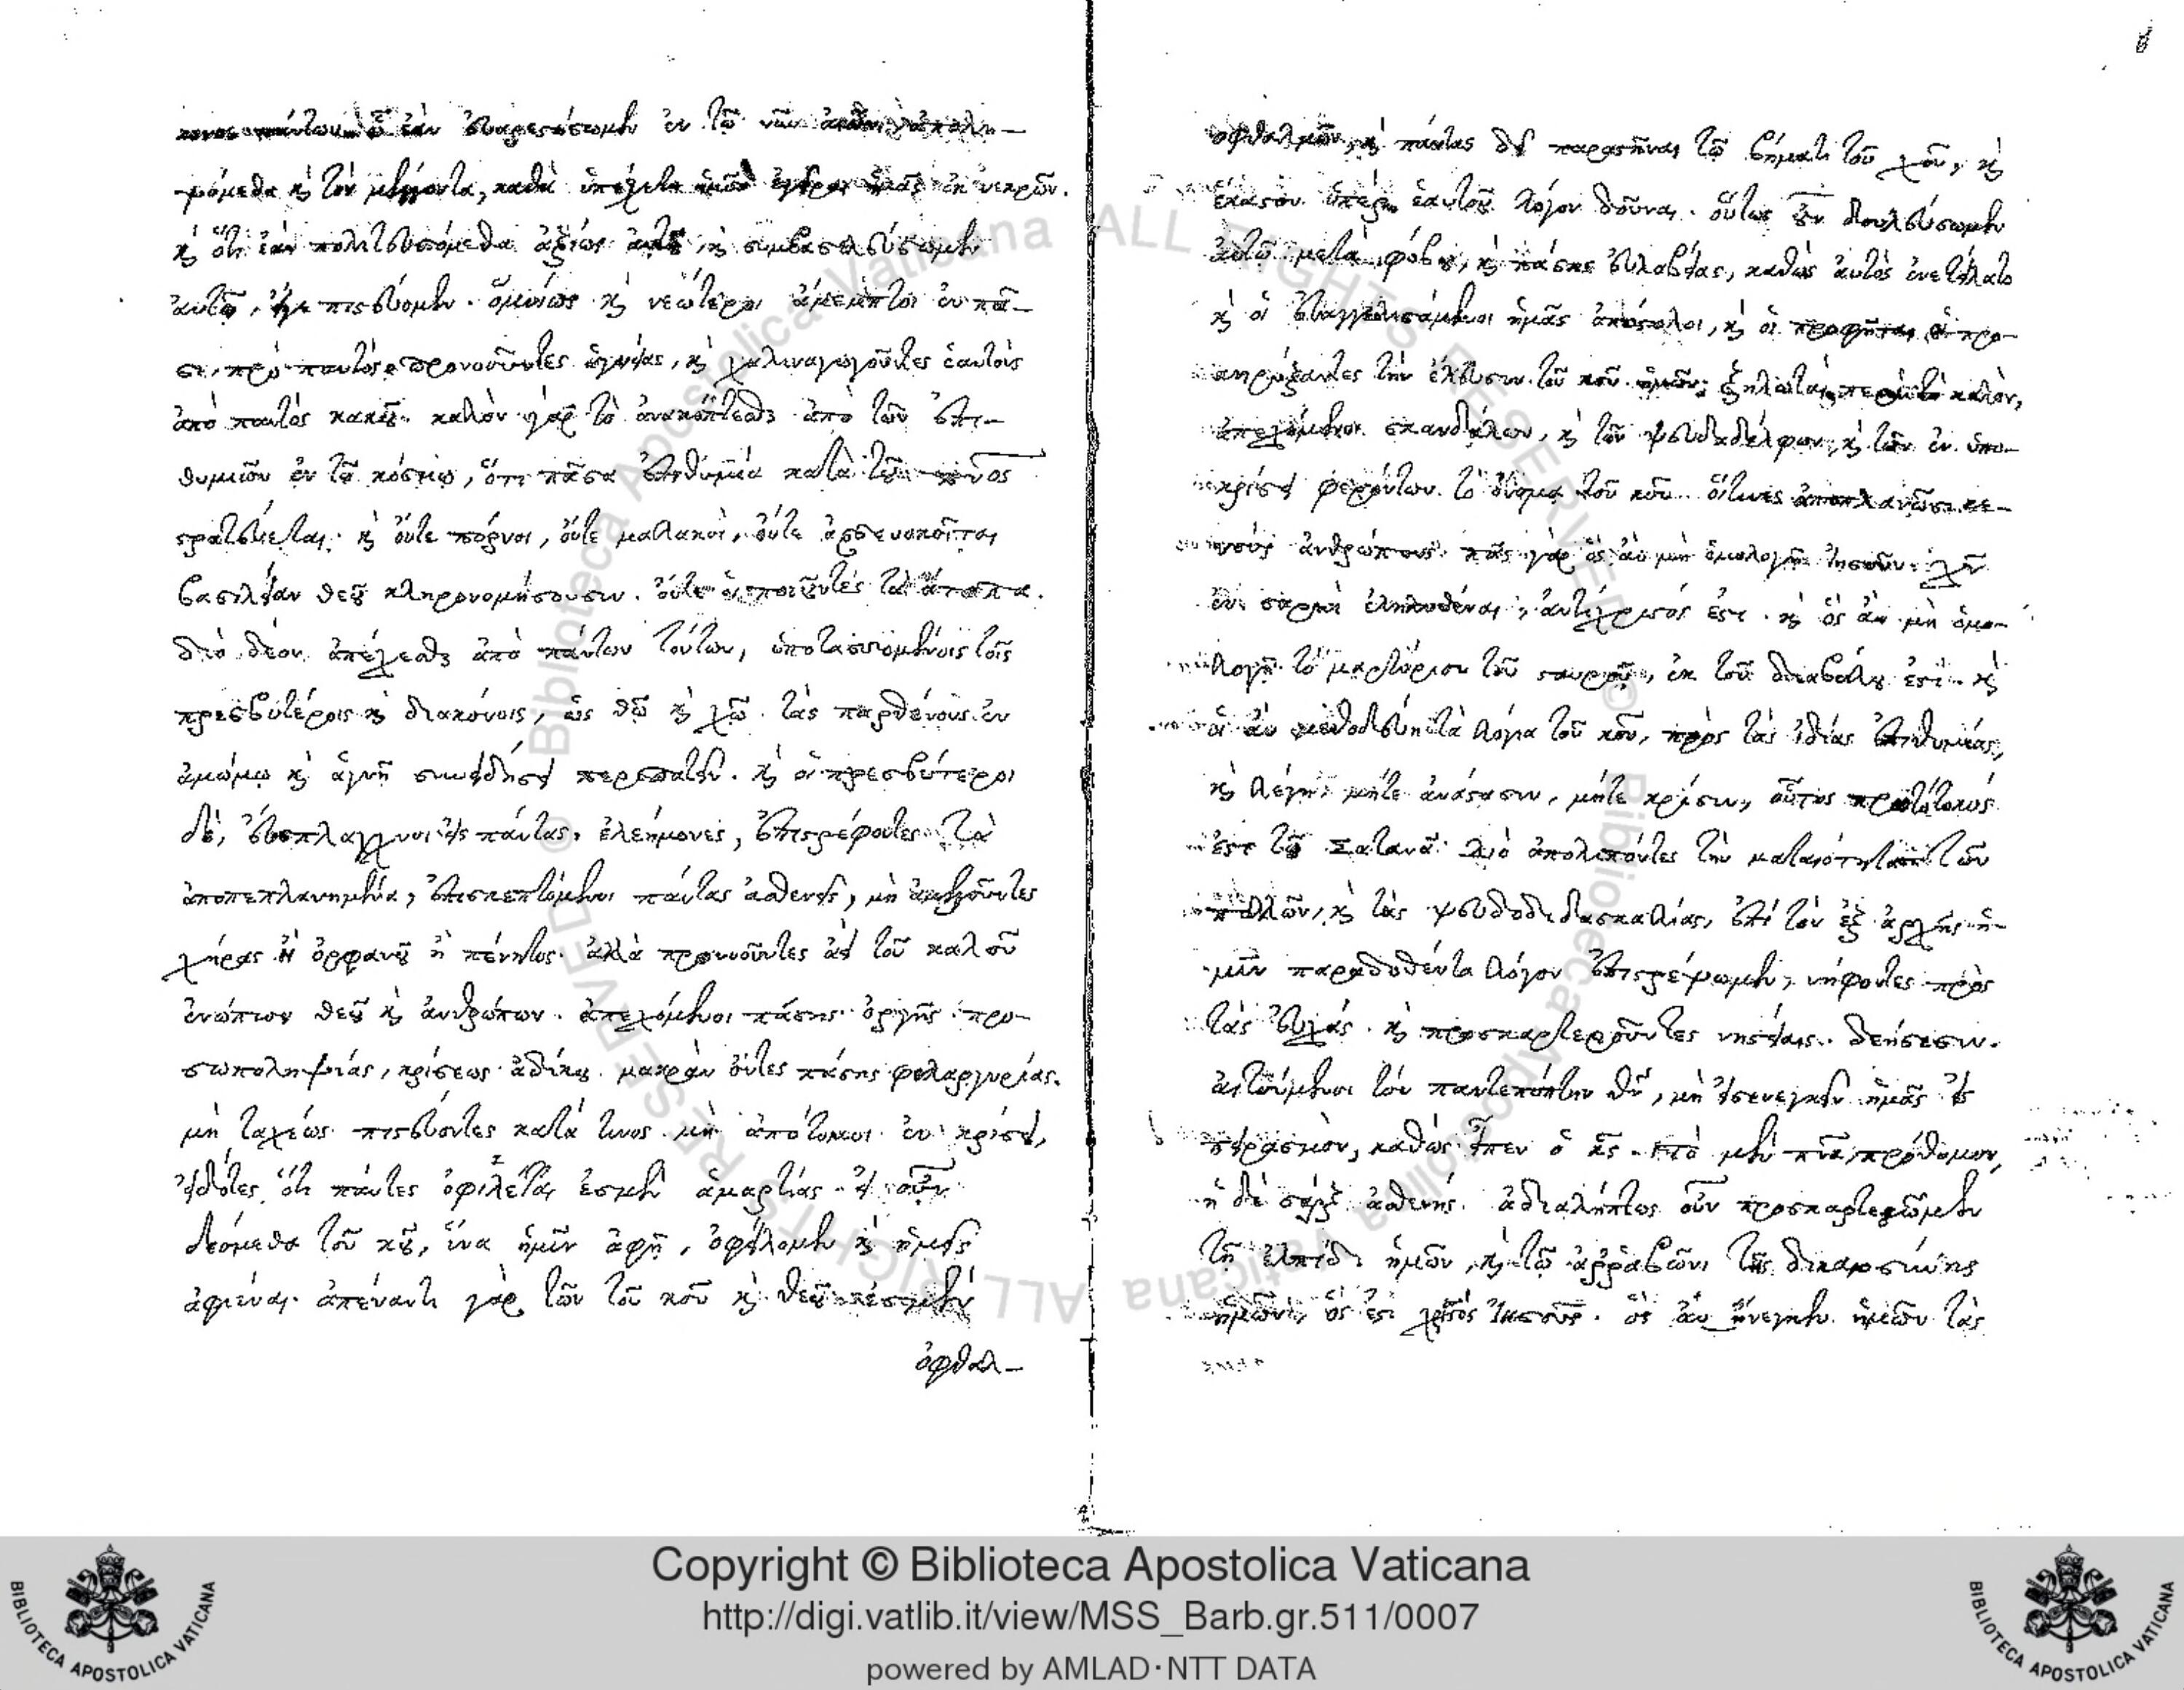 πάντων. ᾧ ἐὰν εὐαρεστήσωμεν ἐν τῷ νῦν αἰῶνι, ἀπολη-
ψόμεθα κ τὸν μέλλοντα, καθὼς ὑπέσχετο ἡμῖν ἐγεῖραι ἡμᾶς ἐκ νεκρῶν.
κ ὅτι ἐὰν πολιτευσόμεθα ἀξίως αὐτοῦ, κ συμβασιλεύσωμεν
αὐτῷ, εἴγε πιστεύομεν. ὁμοίως κ νεώτεροι ἄμεμπτοι ἐν πᾶ-
σι, πρὸ παντὸς προνοοῦντες ἁγνείας, κ χαλιναγωγοῦντες ἑαυτοὺς
ἀπὸ παντὸς κακοῦ. καλὸν γὰρ τὸ ἀνακόπτεσθαι ἀπὸ τῶν ἐπι-
θυμιῶν ἐν τῷ κόσμῳ, ὅτι πᾶσα ἐπιθυμία κατὰ τοῦ πνος
στρατεύεται. κ οὔτε πόρνοι, οὔτε μαλακοὶ, οὔτε ἀρσενοκοῖται
βασιλείαν θεοῦ κληρονομήσουσιν. οὔτε οἱ ποιοῦντες τὰ ἄτοπα.
διὸ δέον ἀπέχεσθαι ἀπὸ πάντων τούτων, ὑποτασσομένοις τοῖς
πρεσβυτέροις κ διακόνοις, ὡς θῷ κ χῷ. τὰς παρθένους ἐν
ἀμώμῳ κ ἁγνῇ συνειδήσει περιπατεῖν. κ οἱ πρεσβύτεροι
δὲ, εὔσπλαγχνοι εἰς πάντας, ἐλεήμονες, ἐπιστρέφοντες τὰ
ἀποπεπλανημένα, ἐπισκεπτόμενοι πάντας ἀσθενεῖς, μὴ ἀμελοῦντες
χήρας ἢ ὀρφανοῦ ἢ πένητος. ἀλλὰ προνοοῦντες ἀεὶ τοῦ καλοῦ
ἐνώπιον θεοῦ κ ἀνθρώπων. ἀπεχόμενοι πάσης ὀργῆς προ-
σωποληψίας, κρίσεως ἀδίκου. μακρὰν ὄντες πάσης φιλαργυρίας.
μὴ ταχέως πιστεύοντες κατά τινος. μὴ ἀπότομοι ἐν κρίσει,
εἰδότες ὅτι πάντες ὀφιλέται ἐσμὲν ἁμαρτίας. εἰ οὖν
δεόμεθα τοῦ κυ, ἵνα ἡμῖν ἀφῇ, ὀφείλομεν κ ἡμεῖς
ἀφιέναι. ἀπέναντι γὰρ τῶν τοῦ κου κ θεοῦ ἐσμὲν
ὀφθαλ-
ὀφθαλμῶν, κ πάντας δεῖ παραστῆναι τῷ βήματι τοῦ χου, κ
ἕκαστον ὑπὲρ ἑαυτοῦ λόγον δοῦναι. οὕτως οὖν δουλεύσωμεν
αὐτῷ μετὰ φόβου, κ πάσης εὐλαβείας, καθὼς αὐτὸς ἐνετείλατο
κ οἱ εὐαγγελισάμενοι ἡμᾶς ἀπόστολοι, κ οἱ προφῆται οἱ προ-
κηρύξαντες τὴν ἔλευσιν τοῦ κου ἡμῶν. ζηλωταὶ περὶ τὸ καλὸν,
ἀπεχόμενοι σκανδάλων, κ τῶν ψευδαδέλφων, κ τῶν ἐν ὑπο-
κρίσει φερόντων τὸ ὄνομα τοῦ κου. οἵτινες ἀποπλανῶσι κε-
νοὺς ἀνθρώπους. πᾶς γὰρ ὃς ἂν μὴ ὁμολογῇ Ἰησοῦν χν
ἐν σαρκὶ ἐληλυθέναι, ἀντίχριστός ἐστι. κ ὃς ἂν μὴ ὁμο-
λογῇ τὸ μαρτύριον τοῦ σταυροῦ, ἐκ τοῦ διαβόλου ἐστί. κ
ὃς ἂν μεθοδεύῃ τὰ λόγια τοῦ κου, πρὸς τὰς ἰδίας ἐπιθυμίας,
κ λέγῃ μήτε ἀνάστασιν, μήτε κρίσιν, οὗτος πρωτότοκός
ἐστι τοῦ Σατανᾶ. Διὸ ἀπολιπόντες τὴν ματαιότητα τῶν
πολλῶν, κ τὰς ψευδοδιδασκαλίας, ἐπὶ τὸν ἐξ ἀρχῆς ἡ-
μῖν παραδοθέντα λόγον ἐπιστρέψωμεν, νήφοντες πρὸς
τὰς εὐχάς. κ προσκαρτεροῦντες νηστείαις. δεήσεσιν.
αἰτούμενοι τὸν παντεπόπτην θν, μὴ εἰσενεγκεῖν ἡμᾶς εἰς
πειρασμὸν, καθὼς εἶπεν ὁ κς. τὸ μὲν πνα πρόθυμον,
ἡ δὲ σὰρξ ἀσθενής. ἀδιαλείπτως οὖν προσκαρτερῶμεν
τῇ ἐλπίδι ἡμῶν, κ τῷ ἀρραβῶνι τῆς δικαιοσύνης
ἡμῶν, ὅς ἐστι χριστὸς Ἰησοῦς. ὃς ἀνήνεγκεν ἡμῶν τὰς
Copyright © Biblioteca Apostolica Vaticana
http://digi.vatlib.it/view/MSS_Barb.gr.511/0007
powered by AMLAD·NTT DATA
BIBLIOTECA APOSTOLICA VATICANA
BIBLIOTECA APOSTOLICA VATICANA